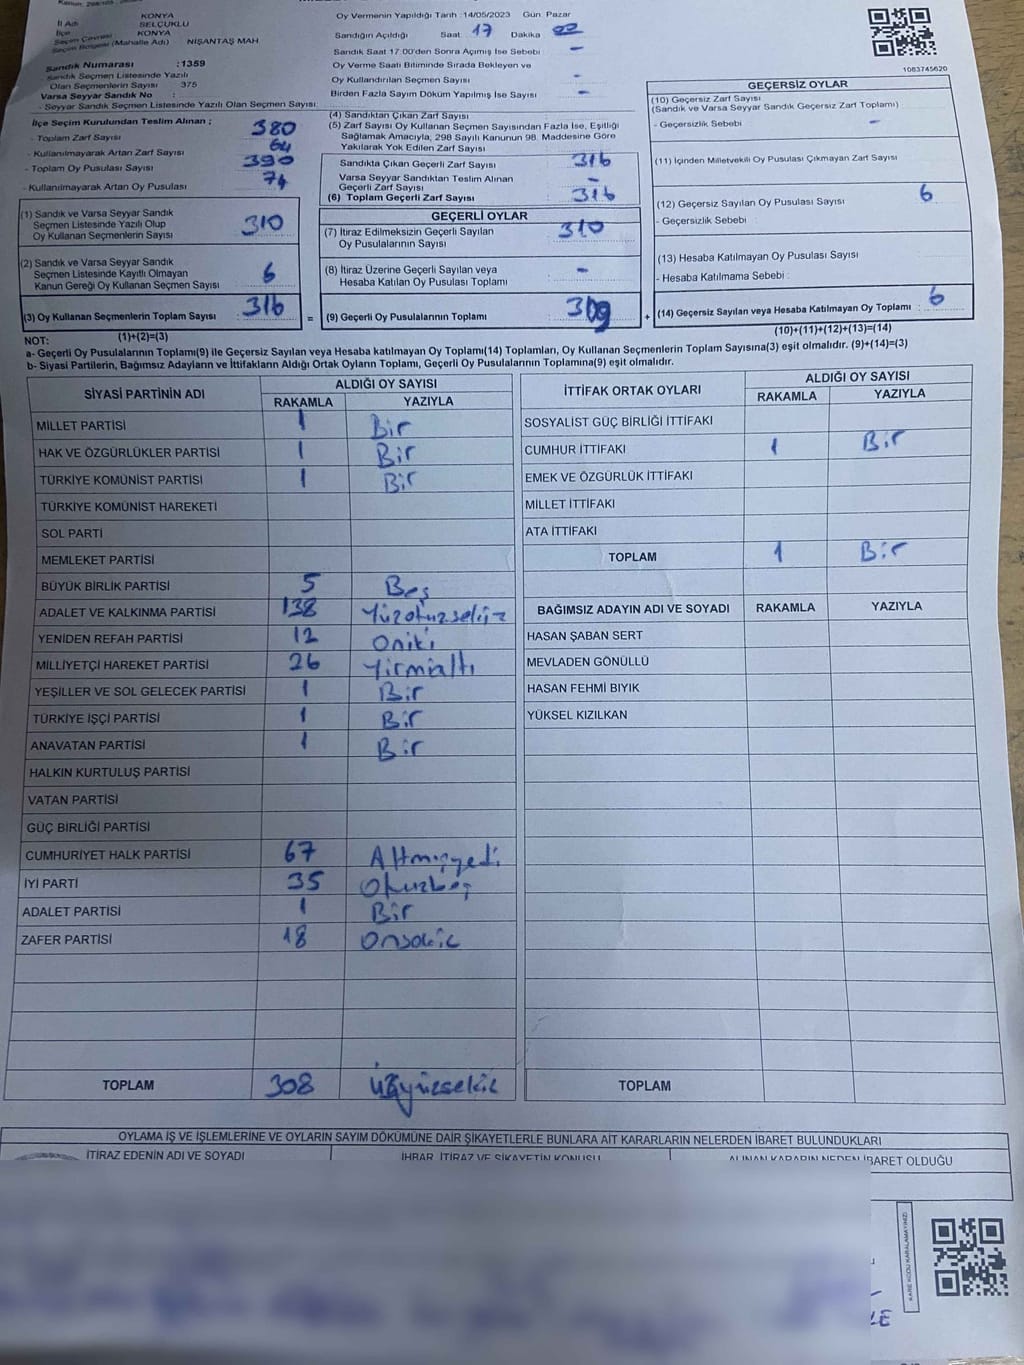 İl Adı KONYA
İlçe SELÇUKLU
Seçim Çevresi KONYA
Seçim Bölgesi (Mahalle Adı) NİŞANTAŞ MAH
Sandık Numarası :1359
Sandık Seçmen Listesinde Yazılı
Olan Seçmenlerin Sayısı : 375
Varsa Seyyar Sandık No :
- Seyyar Sandık Seçmen Listesinde Yazılı Olan Seçmen Sayısı:
Oy Vermenin Yapıldığı Tarih :14/05/2023 Gün: Pazar
Sandığın Açıldığı Saat 17 Dakika 22
Sandık Saat 17:00'den Sonra Açmış İse Sebebi : -
Oy Verme Saati Bitiminde Sırada Bekleyen ve
Oy Kullandırılan Seçmen Sayısı : -
Birden Fazla Sayım Döküm Yapılmış İse Sayısı : -
1083745620
İlçe Seçim Kurulundan Teslim Alınan ;
- Toplam Zarf Sayısı 380
- Kullanılmayarak Artan Zarf Sayısı 64
- Toplam Oy Pusulası Sayısı 390
- Kullanılmayarak Artan Oy Pusulası 74
(1) Sandık ve Varsa Seyyar Sandık
Seçmen Listesinde Yazılı Olup
Oy Kullanan Seçmenlerin Sayısı 310
(2) Sandık ve Varsa Seyyar Sandık
Seçmen Listesinde Kayıtlı Olmayan
Kanun Gereği Oy Kullanan Seçmen Sayısı 6
(3) Oy Kullanan Seçmenlerin Toplam Sayısı 316
(1)+(2)=(3)
(4) Sandıktan Çıkan Zarf Sayısı
(5) Zarf Sayısı Oy Kullanan Seçmen Sayısından Fazla İse, Eşitliği
Sağlamak Amacıyla, 298 Sayılı Kanunun 98. Maddesine Göre
Yakılarak Yok Edilen Zarf Sayısı
Sandıkta Çıkan Geçerli Zarf Sayısı 316
Varsa Seyyar Sandıktan Teslim Alınan
Geçerli Zarf Sayısı -
(6) Toplam Geçerli Zarf Sayısı 316
GEÇERLİ OYLAR
(7) İtiraz Edilmeksizin Geçerli Sayılan
Oy Pusulalarının Sayısı 310
(8) İtiraz Üzerine Geçerli Sayılan veya
Hesaba Katılan Oy Pusulası Toplamı -
= (9) Geçerli Oy Pusulalarının Toplamı 309
GEÇERSİZ OYLAR
(10) Geçersiz Zarf Sayısı
(Sandık ve Varsa Seyyar Sandık Geçersiz Zarf Toplamı)
- Geçersizlik Sebebi : -
(11) İçinden Milletvekili Oy Pusulası Çıkmayan Zarf Sayısı
(12) Geçersiz Sayılan Oy Pusulası Sayısı 6
- Geçersizlik Sebebi :
(13) Hesaba Katılmayan Oy Pusulası Sayısı
- Hesaba Katılmama Sebebi :
+ (14) Geçersiz Sayılan veya Hesaba Katılmayan Oy Toplamı : 6
(10)+(11)+(12)+(13)=(14)
NOT:
a- Geçerli Oy Pusulalarının Toplamı(9) ile Geçersiz Sayılan veya Hesaba katılmayan Oy Toplamı(14) Toplamları, Oy Kullanan Seçmenlerin Toplam Sayısına(3) eşit olmalıdır. (9)+(14)=(3)
b- Siyasi Partilerin, Bağımsız Adayların ve İttifakların Aldığı Ortak Oyların Toplamı, Geçerli Oy Pusulalarının Toplamına(9) eşit olmalıdır.
SİYASİ PARTİNİN ADI ALDIĞI OY SAYISI
RAKAMLA YAZIYLA
MİLLET PARTİSİ 1 Bir
HAK VE ÖZGÜRLÜKLER PARTİSİ 1 Bir
TÜRKİYE KOMÜNİST PARTİSİ 1 Bir
TÜRKİYE KOMÜNİST HAREKETİ
SOL PARTİ
MEMLEKET PARTİSİ
BÜYÜK BİRLİK PARTİSİ 5 Beş
ADALET VE KALKINMA PARTİSİ 138 Yüzotuzsekiz
YENİDEN REFAH PARTİSİ 12 Oniki
MİLLİYETÇİ HAREKET PARTİSİ 26 Yirmialtı
YEŞİLLER VE SOL GELECEK PARTİSİ 1 Bir
TÜRKİYE İŞÇİ PARTİSİ 1 Bir
ANAVATAN PARTİSİ 1 Bir
HALKIN KURTULUŞ PARTİSİ
VATAN PARTİSİ
GÜÇ BİRLİĞİ PARTİSİ
CUMHURİYET HALK PARTİSİ 67 Altmışyedi
İYİ PARTİ 35 Otuzbeş
ADALET PARTİSİ 1 Bir
ZAFER PARTİSİ 18 Onsekiz
TOPLAM 308 Üçyüzsekiz
İTTİFAK ORTAK OYLARI ALDIĞI OY SAYISI
RAKAMLA YAZIYLA
SOSYALİST GÜÇ BİRLİĞİ İTTİFAKI
CUMHUR İTTİFAKI 1 Bir
EMEK VE ÖZGÜRLÜK İTTİFAKI
MİLLET İTTİFAKI
ATA İTTİFAKI
TOPLAM 1 Bir
BAĞIMSIZ ADAYIN ADI VE SOYADI RAKAMLA YAZIYLA
HASAN ŞABAN SERT
MEVLADEN GÖNÜLLÜ
HASAN FEHMİ BIYIK
YÜKSEL KIZILKAN
TOPLAM
OYLAMA İŞ VE İŞLEMLERİNE VE OYLARIN SAYIM DÖKÜMÜNE DAİR ŞİKAYETLERLE BUNLARA AİT KARARLARIN NELERDEN İBARET BULUNDUKLARI
İTİRAZ EDENİN ADI VE SOYADI İHBAR, İTİRAZ VE ŞİKAYETİN KONUSU ALINAN KARARIN NEDEN İBARET OLDUĞU
KARE KODU KARALAMAYINIZ!